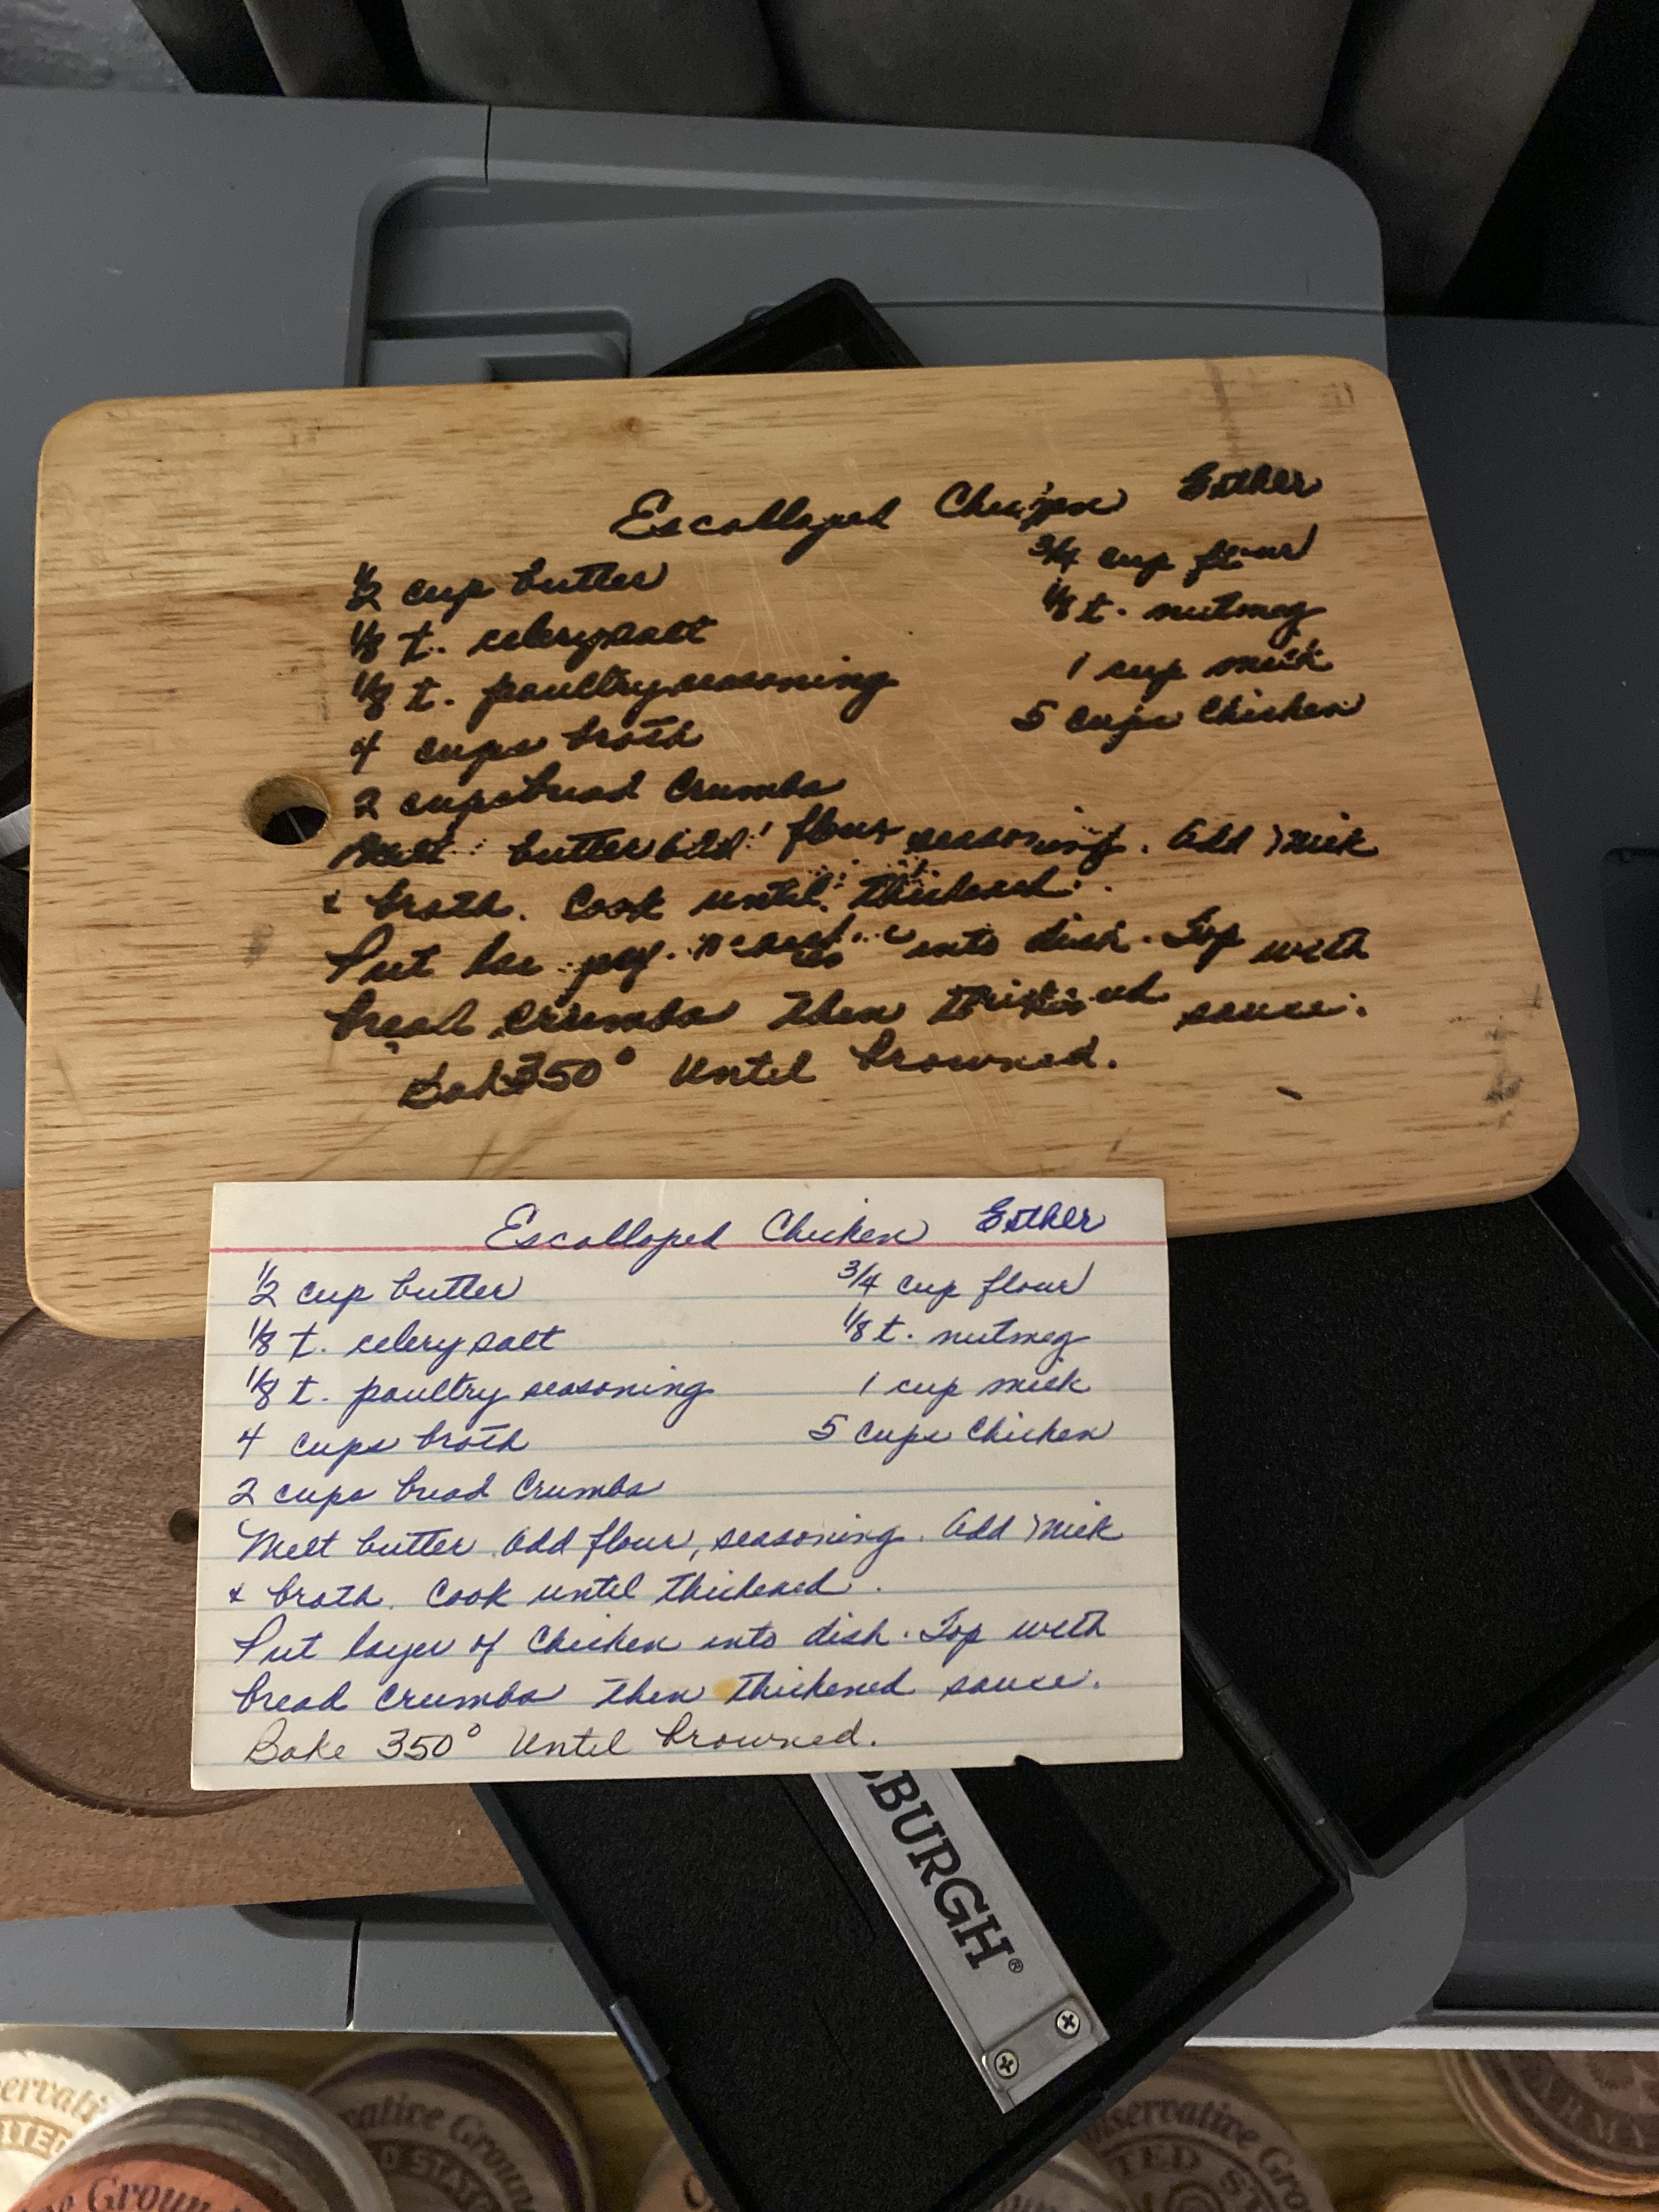 Escalloped Chicken Esther
1/2 cup butter 3/4 cup flour
1/8 t. celery salt 1/8 t. nutmeg
1/8 t. poultry seasoning 1 cup milk
4 cups broth 5 cups Chicken
2 cups bread Crumbs
Melt butter add flour seasoning. Add Milk
& broth. Cook until thickened.
Put into dish. Top with
bread crumbs then sauce.
Bake 350° Until browned.
Escalloped Chicken Esther
1/2 cup butter 3/4 cup flour
1/8 t. celery salt 1/8 t. nutmeg
1/8 t. poultry seasoning 1 cup milk
4 cups broth 5 cups Chicken
2 cups bread Crumbs
Melt butter add flour, seasoning. Add Milk
& broth. Cook until thickened.
Put layer of Chicken into dish. Top with
bread crumbs then thickened sauce.
Bake 350° Until browned.
SBURGH®